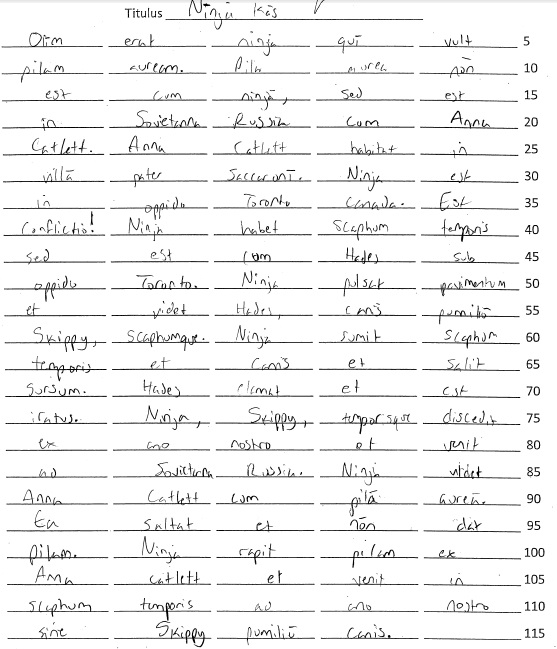 Titulus Ninja Kās
Olim erat ninja quī vult 5
pilam auream. Pila aurea nōn 10
est cum ninjā, sed est 15
in Sovietanna Russia cum Anna 20
Catlett. Anna Catlett habitat in 25
villā pater Saccaronī. Ninja est 30
in oppidō Toronto Canada. Est 35
Conflictiō! Ninja habet Scaphum temporis 40
sed est cum Hades sub 45
oppidō Toronto. Ninja pulsat pavimentum 50
et videt Hades, canis pumiliō 55
Skippy, Scaphumque. Ninja sumit Scaphum 60
temporis et Canis et Salit 65
Sursum. Hades clamat et est 70
iratus. Ninja, Skippy, temporisque discedit 75
ex ano nostro et venit 80
ad Sovietanna Russia. Ninja videt 85
Anna Catlett cum pilā aureā. 90
Ea saltat et nōn dat 95
pilam. Ninja rapit pilam ex 100
Anna Catlett et venit in 105
Scaphum temporis ad ano nostro 110
sine Skippy pumiliō canis. 115